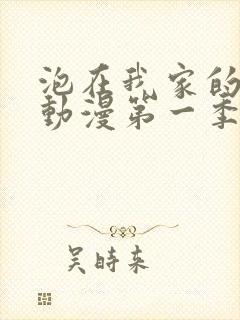 泡在我家的
動漫第一季
吴時来